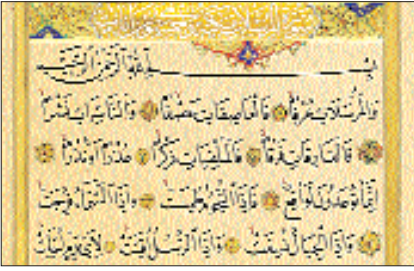 بسم الله الرحمن الرحيم
والمرسلات عرفا فالعاصفات عصفا والناشرات نشرا
فالفارقات فرقا فالملقيات ذكرا عذرا او نذرا
انما توعدون لواقع فاذا النجوم طمست واذا السماء فرجت
واذا الجبال نسفت واذا الرسل اقتت لاي يوم اجلت